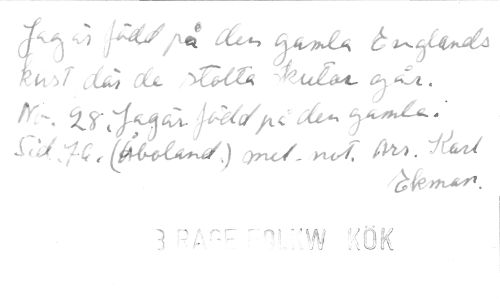 Jag är född på den gamla Englands
kust där de stolta skutor går.
No. 28. Jag är född på den gamla.
Sid. 72. (Åboland.) met. not. Ars. Karl
Ekman.
B RAGE KÖK